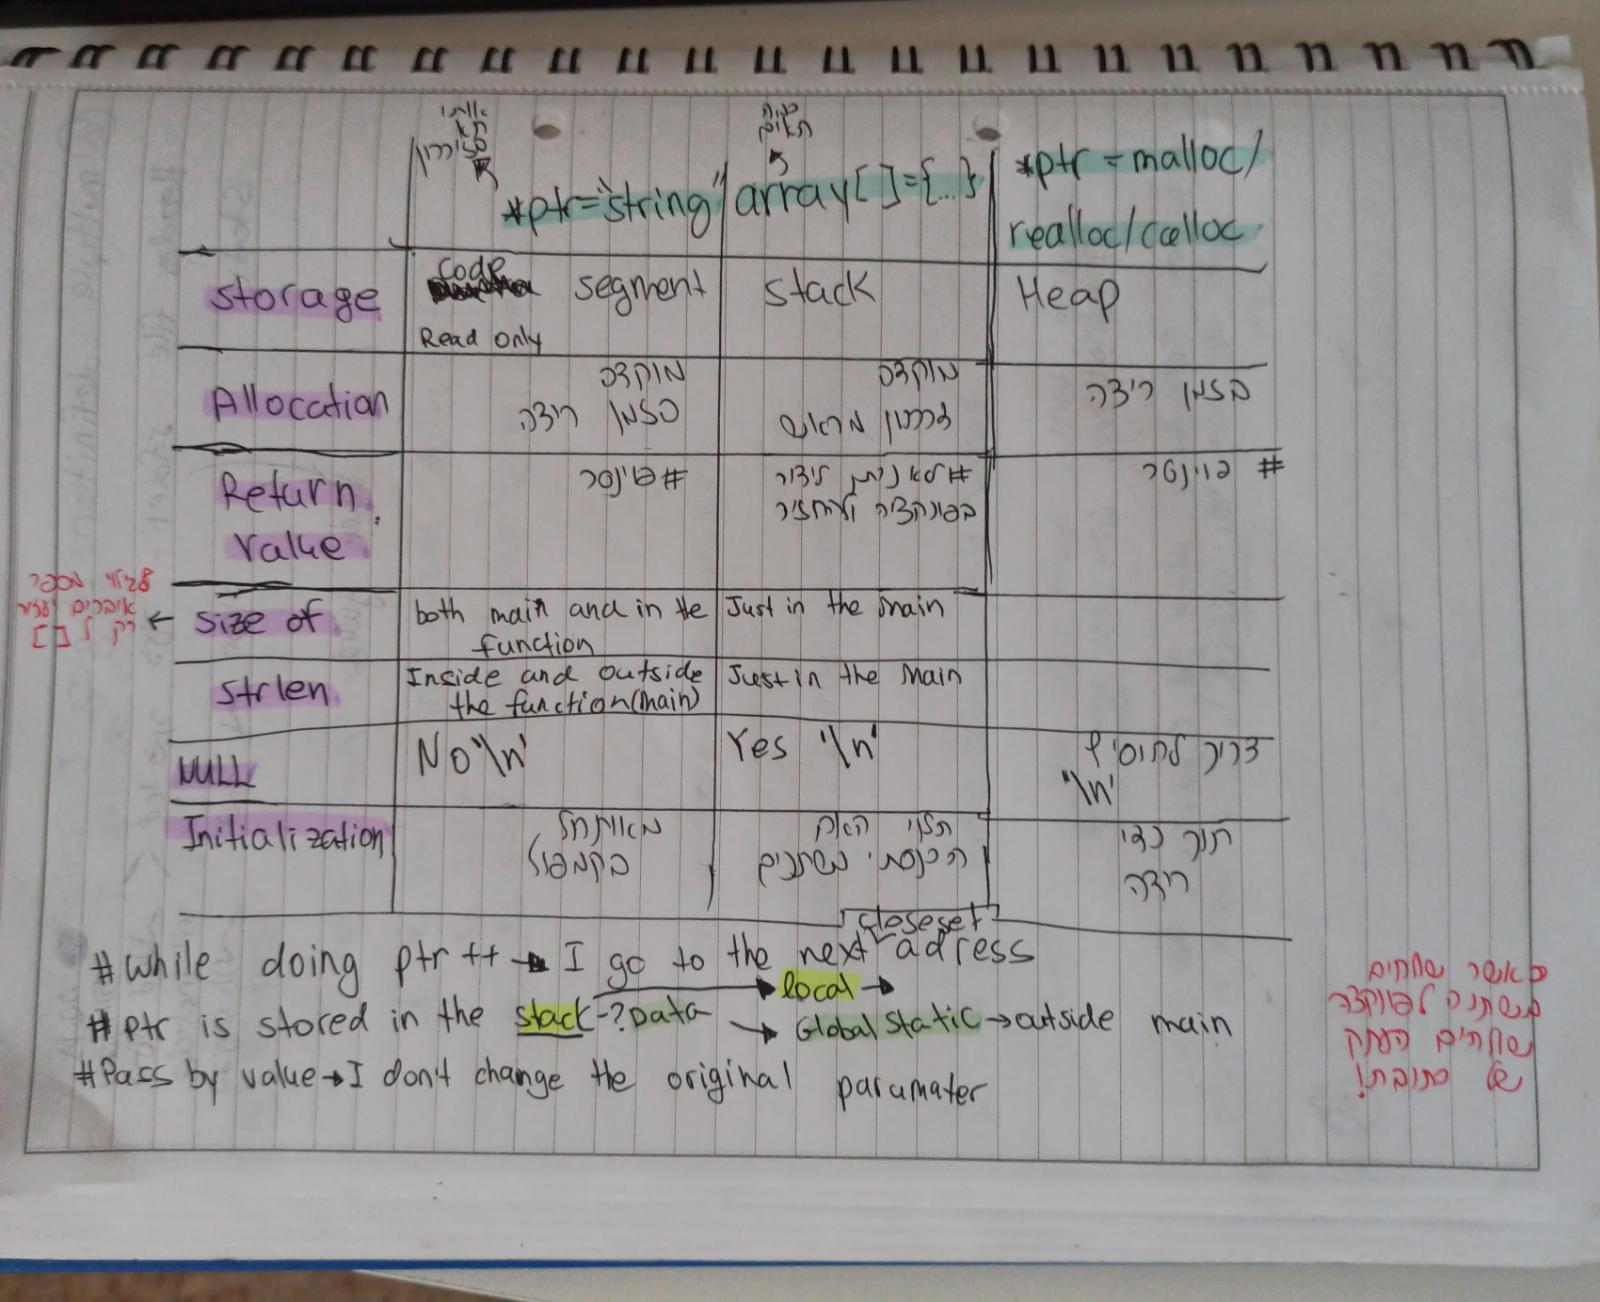 *ptr="string"
array[]={...}
*ptr = malloc/
realloc/calloc
Storage
code segment
Read only
stack
Heap
Allocation
מוקצה
בזמן ריצה
מוקצה
מראש
בזמן ריצה
Return
Value
#פוינטר
#לא ניתן ליצור
בפונקציה ולהחזיר
# פוינטר
size of
both main and in the
function
Just in the main
מספר
איברים
רק ל []
strlen
Inside and outside
the function(main)
Just in the main
NULL
No '\n'
Yes '\n'
צריך להוסיף
'\n'
Initialization
מאותחל
בקמפול
תלוי האם
הכנסתי משתנים
תוך כדי
ריצה
closeset
#while doing ptr ++ → I go to the next adress
local →
#ptr is stored in the stack-?Data → Global static → outside main
#Pass by value → I don't change the original paramater
כאשר שולחים
משתנה לפונקציה
שולחים העתק
של כתובת!